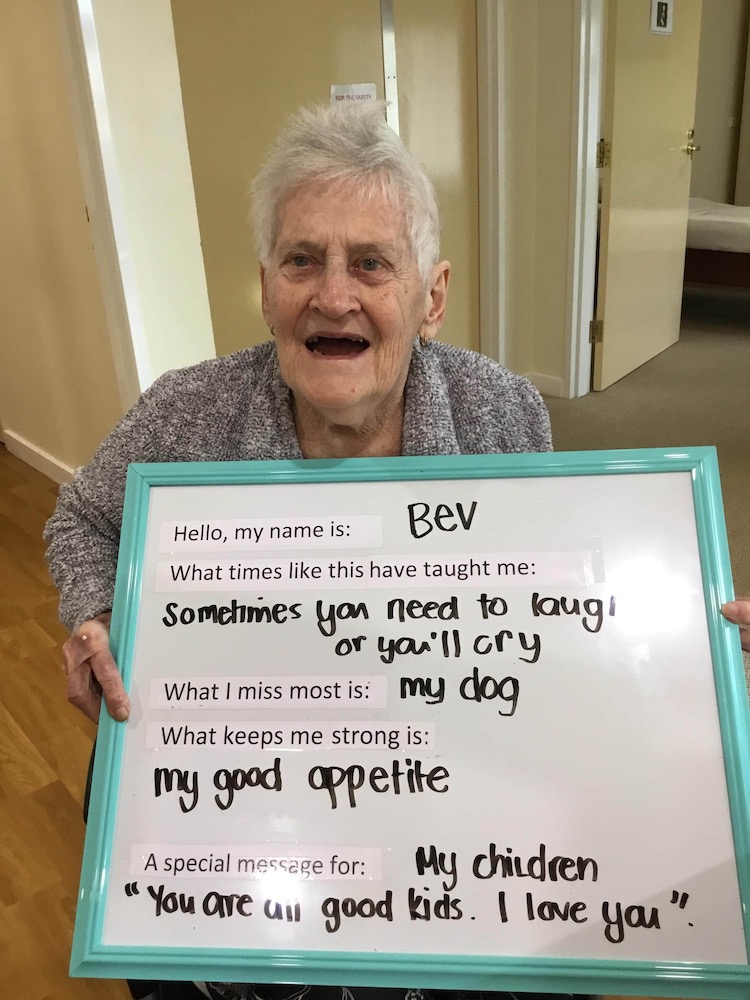 FOR THE SAFETY
Hello, my name is: Bev
What times like this have taught me:
Sometimes you need to laugh
or you'll cry
What I miss most is: my dog
What keeps me strong is:
my good appetite
A special message for: My children
"You are all good kids. I love you".